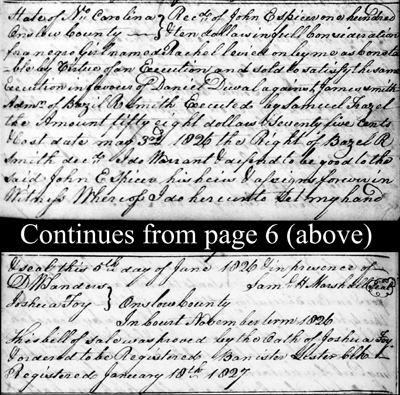 State of No Carolina } Recd of John E Spicer one hundred
Onslow County } & ten dollars in full Consideration
for a negro Girl named Rachel levied on by me as Consta
ble by Virtue of an Execution and sold to satisfy the same
Execution in favour of Daniel Duval against James Smith
Admr of Bazel R Smith Executed by Samuel Hazel
the Amount fifty eight dollars & Seventy five Cents
& Cost date may 3rd 1826 the Right of Bazel R
Smith decd I do Warrant & defend to be good to the
Said John E Spicer his heirs & assigns forever in
Witness Whereof I do hereunto Set my hand
Continues from page 6 (above)
& seal this 5th day of June 1826 in presence of
D W Sanders } Saml H Marshall Seal
Joshua Foy } Onslow County
In Court November term 1826
This bill of sale was proved by the Oath of Joshua Foy
& ordered to be Registered Banister Lester Clk
Registered January 18th 1827